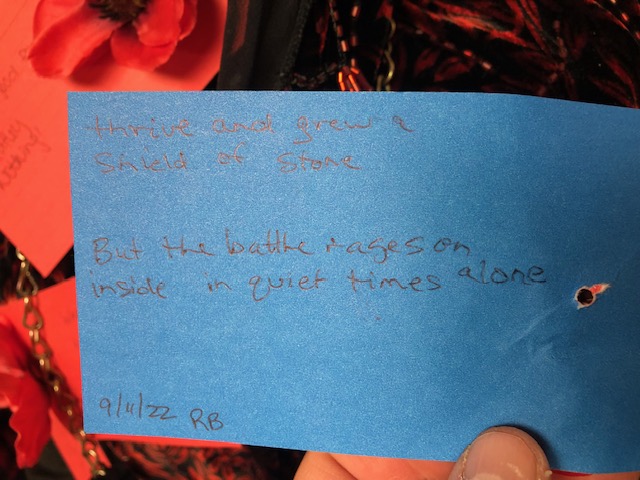 thrive and grew a
Shield of Stone
But the battle rages on
inside in quiet times alone
9/11/22 RB